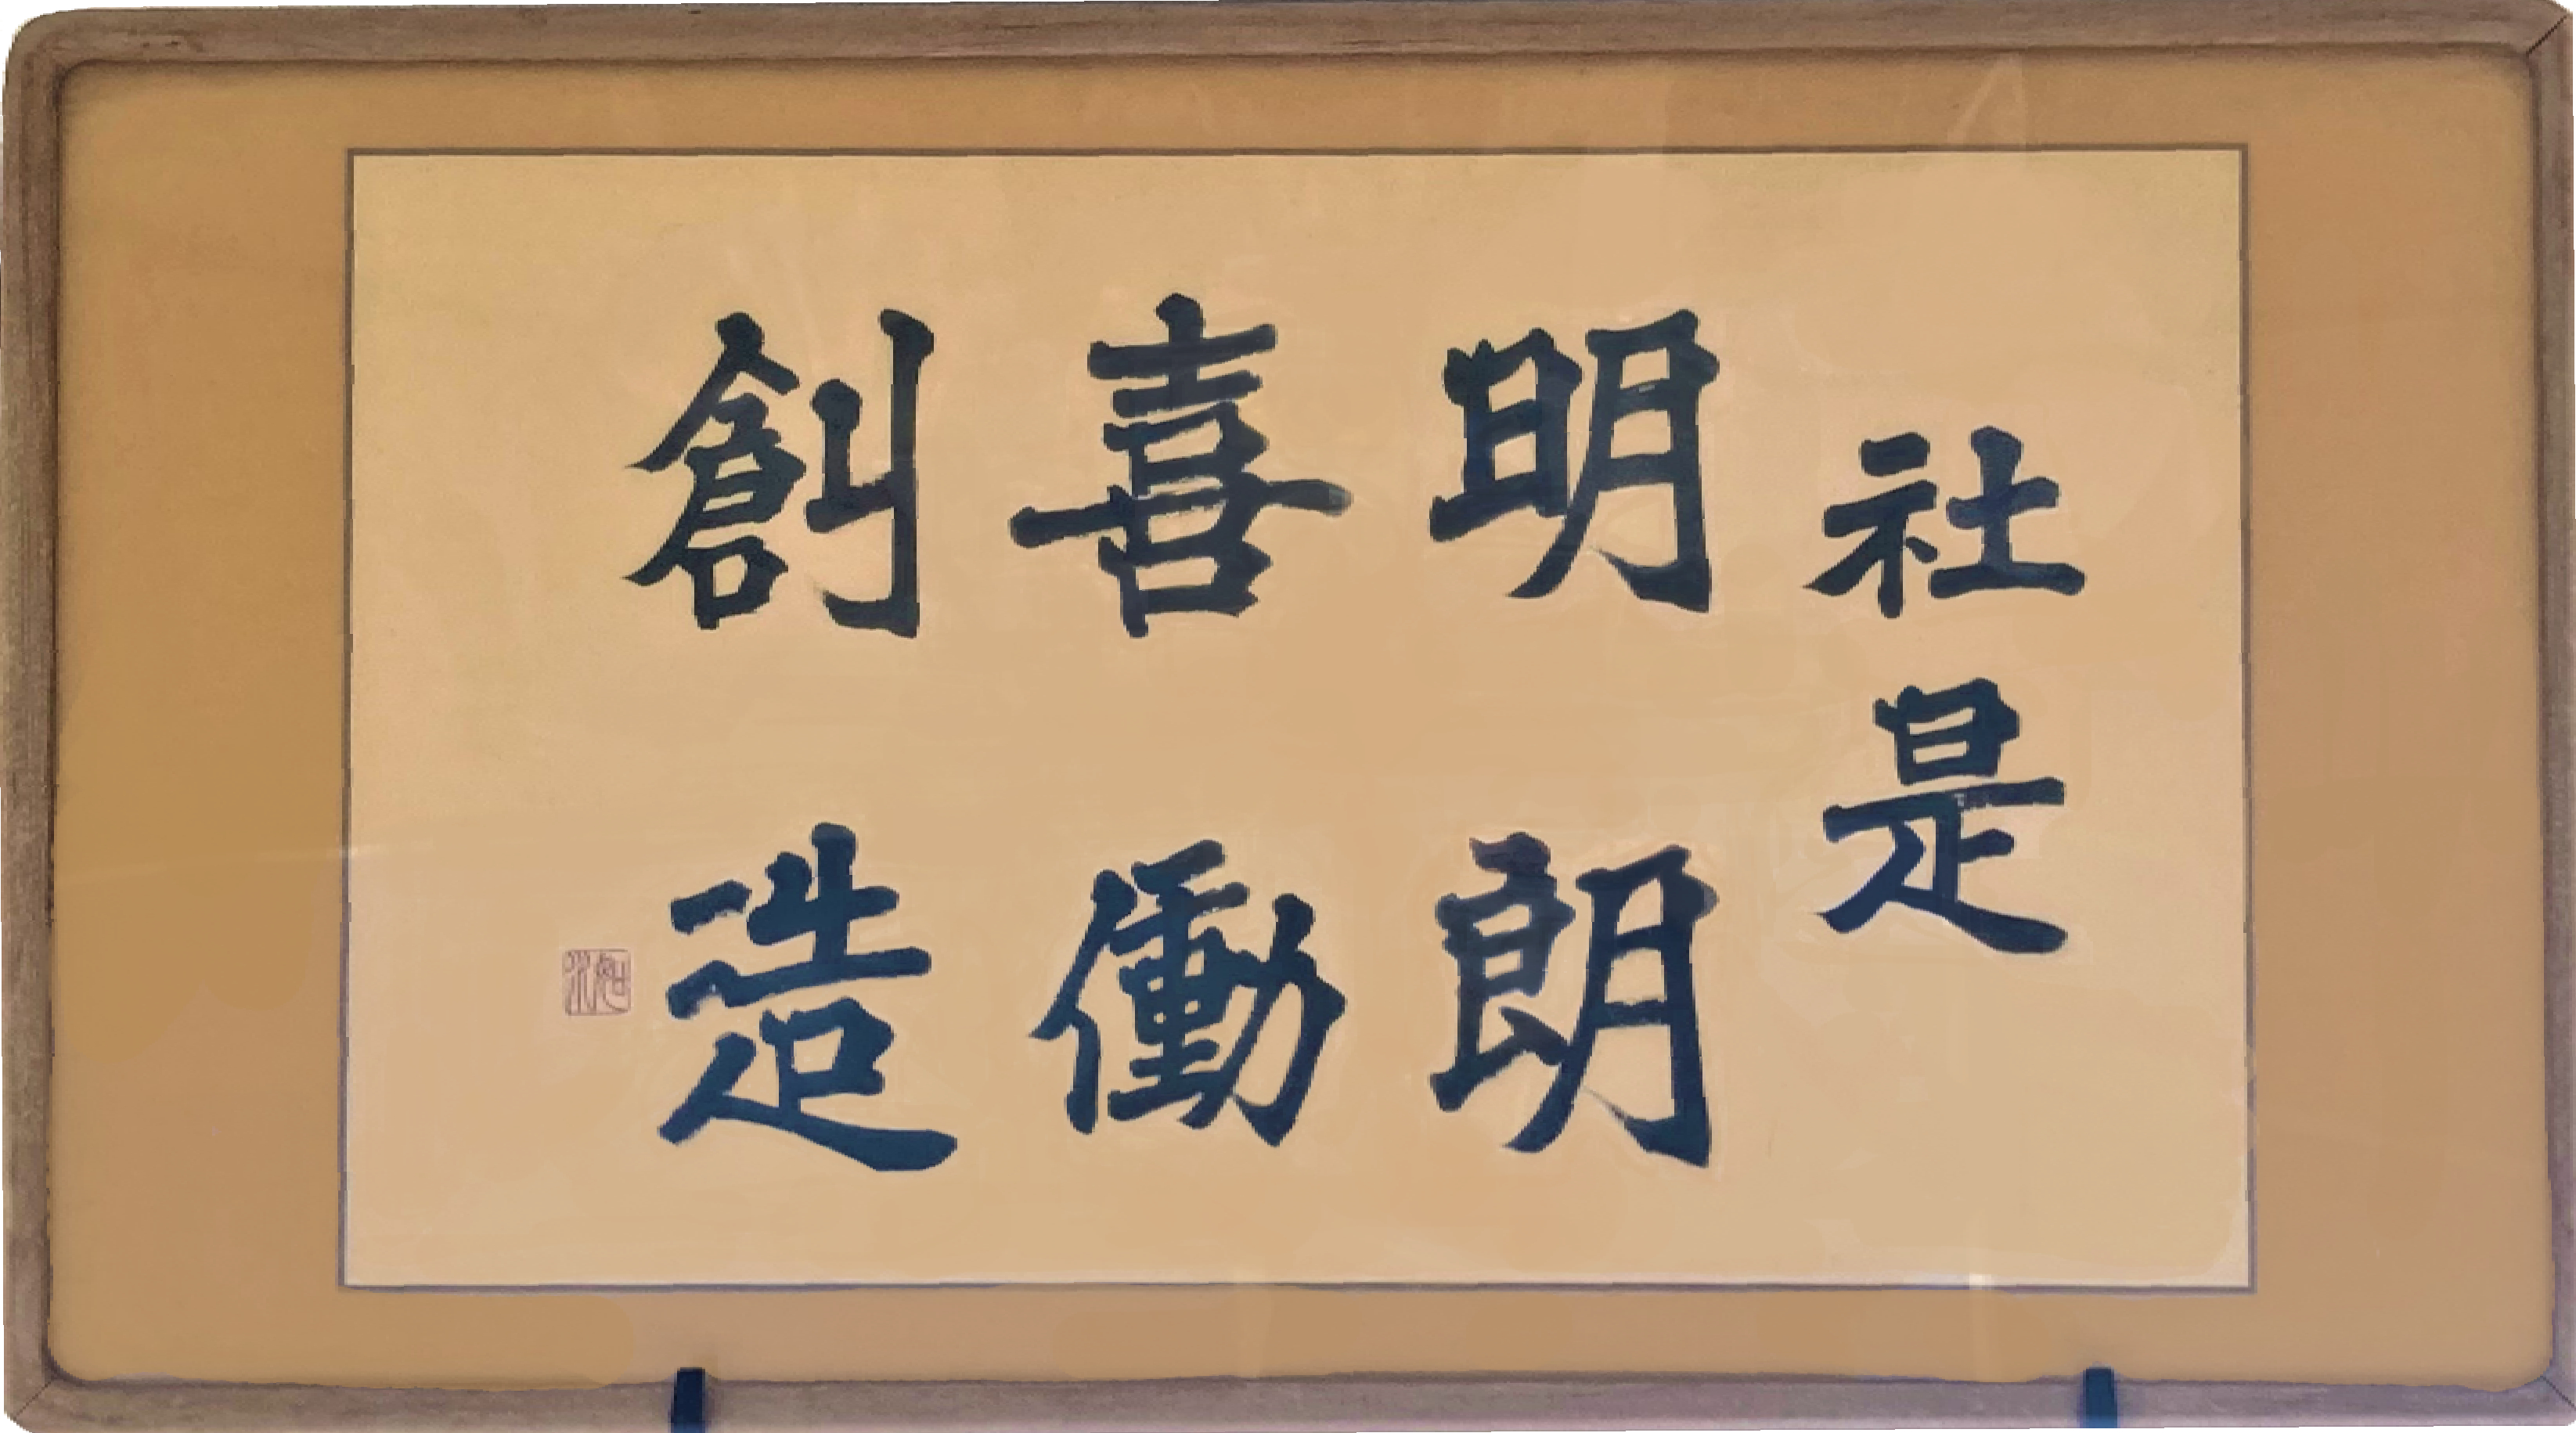 社是
明朗
喜働
創造